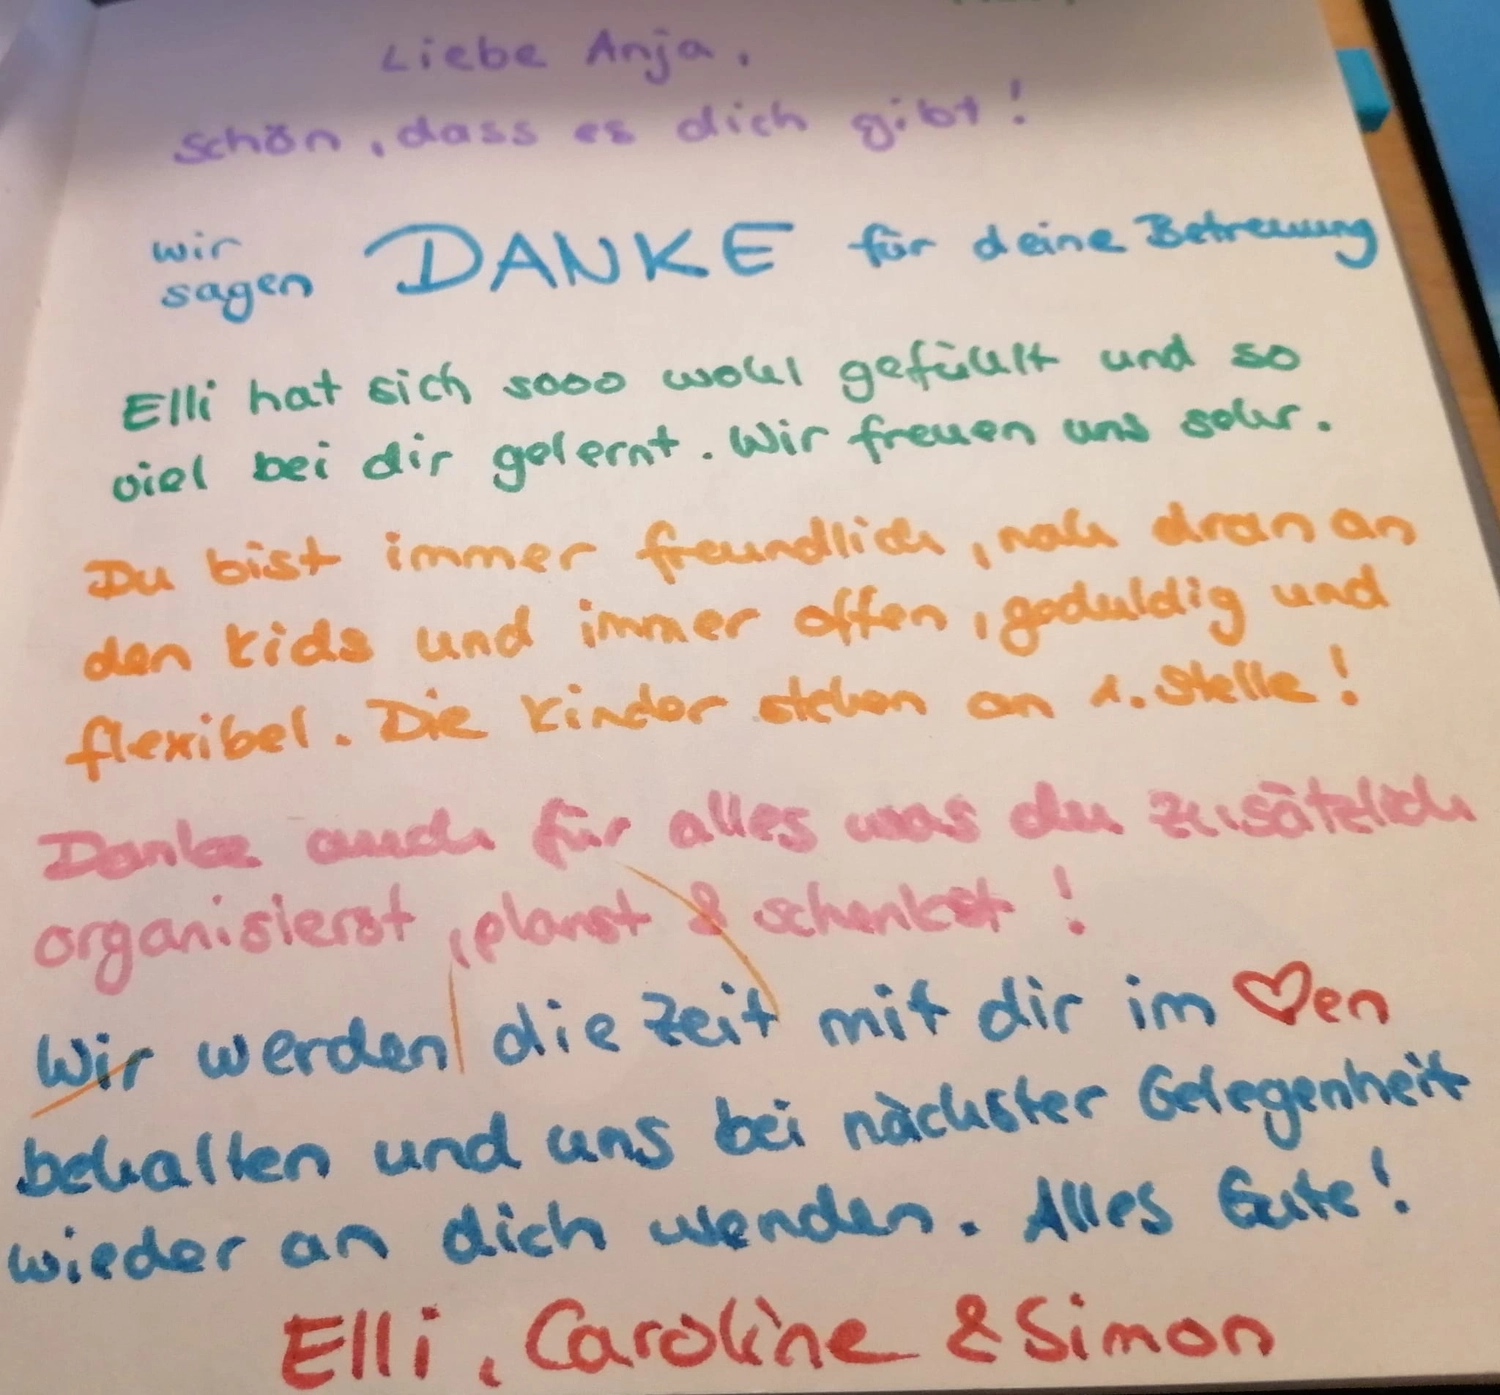 Liebe Anja,
schön, dass es dich gibt!
wir
sagen DANKE für deine Betreuung
Elli hat sich sooo wohl gefühlt und so
viel bei dir gelernt. Wir freuen uns sehr.
Du bist immer freundlich, nah dran an
den Kids und immer offen, geduldig und
flexibel. Die Kinder stehen an 1. Stelle!
Danke auch für alles was du zusätzlich
organisierst, planst & schenkst!
Wir werden die Zeit mit dir im ♡en
behalten und uns bei nächster Gelegenheit
wieder an dich wenden. Alles Gute!
Elli, Caroline & Simon